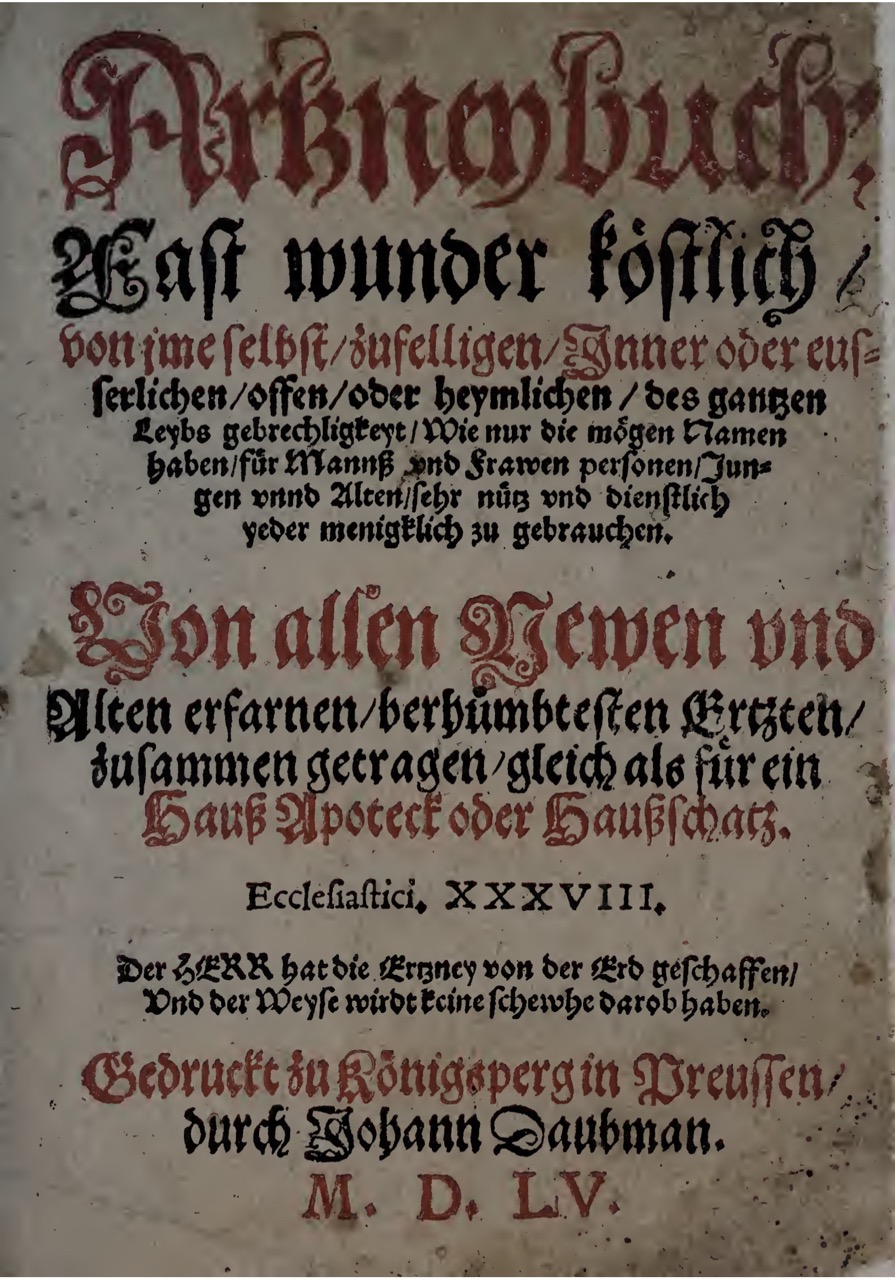 Artzneybuch/
Fast wunder köstlich /
von jme selbst/zufelligen/Inner oder eus⸗
serlichen/offen/oder heymlichen / des gantzen
Leybs gebrechligkeyt/Wie nur die mögen Namen
haben/für Mannß vnd Frawen personen/Jun⸗
gen vnnd Alten/sehr nütz vnd dienstlich
yeder menigklich zu gebrauchen.
Von allen Newen vnd
Alten erfarnen/berhümbtesten Ertzten/
zusammen getragen/gleich als für ein
Hauß Apoteck oder Haußschatz.
Ecclesiastici. XXXVIII.
Der HERR hat die Ertzney von der Erd geschaffen/
Vnd der Weyse wirdt keine schewhe darob haben.
Gedruckt zu Königsperg in Preussen/
durch Johann Daubman.
M. D. LV.